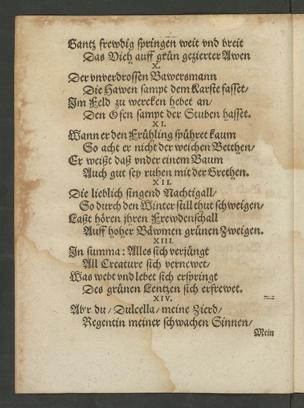 Gantz frewdig springen weit vnd breit
Das Vieh auff grün gezierter Awen
X.
Der vnverdrossen Bawersmann
Die Hawen sampt dem Karste fasset/
Im Feld zu wercken hebet an/
Den Ofen sampt der Stuben hasset.
XI.
Wann er den Frühling spühret kaum
So acht er nicht der weichen Betthen/
Er weißt daß vnder einem Baum
Auch gut sey ruhen mit der Grethen.
XII.
Die lieblich singend Nachtigall/
So durch den Winter still thut schweigen/
Laßt hören jhren Frewdenschall
Auff hoher Bäwmen grünen Zweigen.
XIII.
In summa: Alles sich verjüngt
All Creature sich vernewet/
Was webt vnd lebet sich erspringt
Des grünen Lentzen sich erfrewet.
XIV.
Ab'r du/ Dulcella/ meine Zierd/
Regentin meiner schwachen Sinnen/
Mein